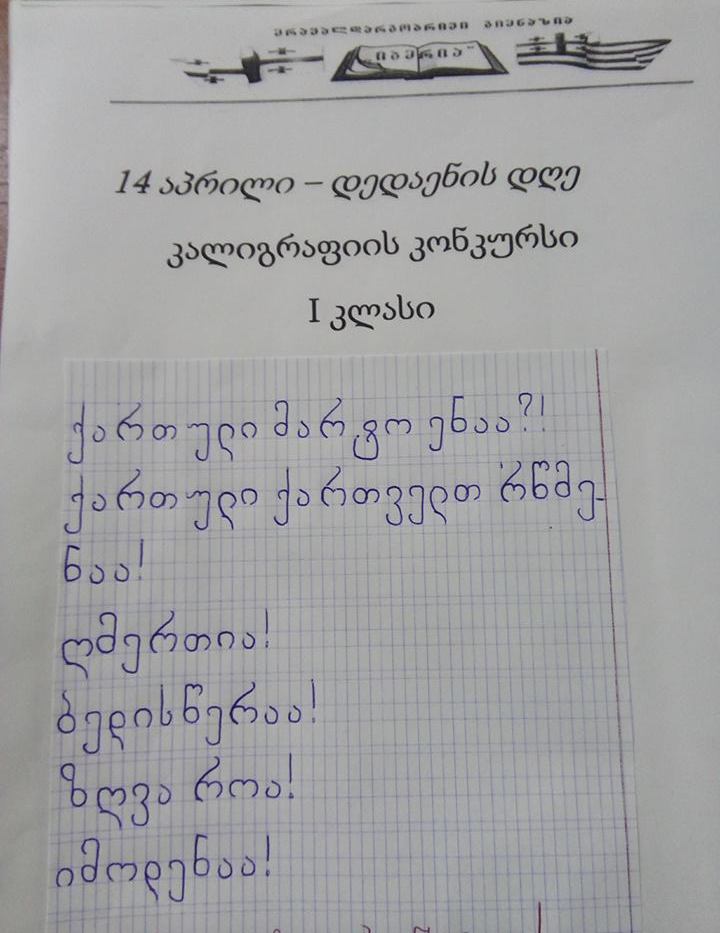 მრავალდარგობრივი გიმნაზია
14 აპრილი – დედაენის დღე
კალიგრაფიის კონკურსი
I კლასი
ქართული მარტო ენაა?!
ქართული ქართველთ რწმე-
ნაა!
ღმერთია!
ბედისწერაა!
ზღვა როა!
იმოდენაა!